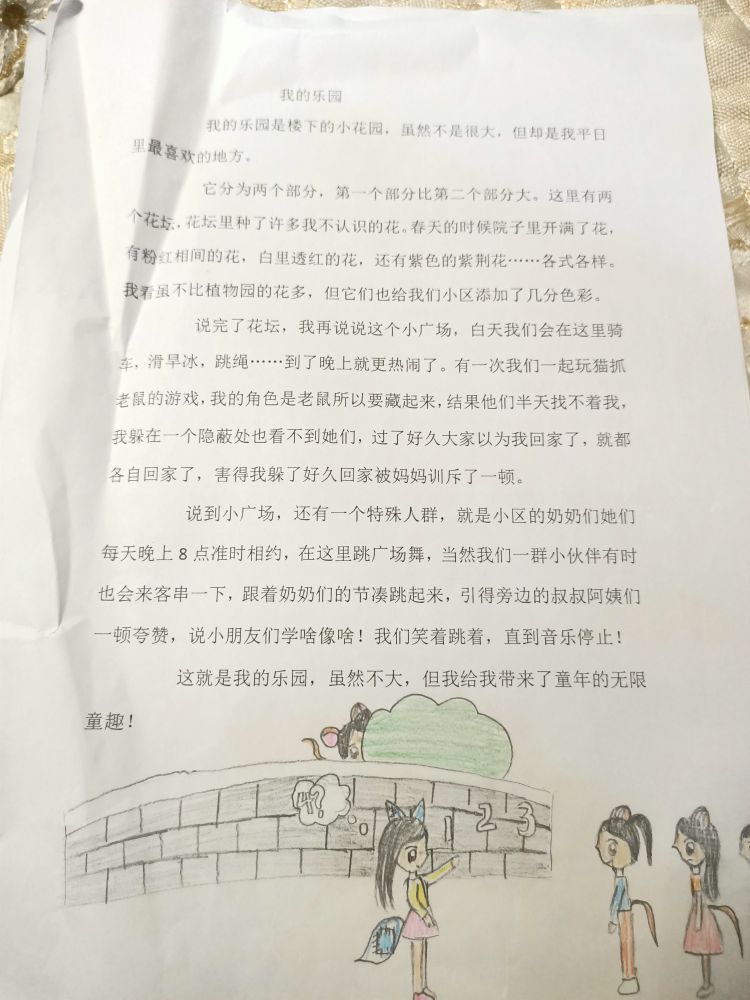 我的乐园
我的乐园是楼下的小花园，虽然不是很大，但却是我平日
里最喜欢的地方。
它分为两个部分，第一个部分比第二个部分大。这里有两
个花坛，花坛里种了许多我不认识的花。春天的时候院子里开满了花，
有粉红相间的花，白里透红的花，还有紫色的紫荆花……各式各样。
我看虽不比植物园的花多，但它们也给我们小区添加了几分色彩。
说完了花坛，我再说说这个小广场，白天我们会在这里骑
车，滑旱冰，跳绳……到了晚上就更热闹了。有一次我们一起玩猫抓
老鼠的游戏，我的角色是老鼠所以要藏起来，结果他们半天找不着我，
我躲在一个隐蔽处也看不到她们，过了好久大家以为我回家了，就都
各自回家了，害得我躲了好久回家被妈妈训斥了一顿。
说到小广场，还有一个特殊人群，就是小区的奶奶们她们
每天晚上 8 点准时相约，在这里跳广场舞，当然我们一群小伙伴有时
也会来客串一下，跟着奶奶们的节凑跳起来，引得旁边的叔叔阿姨们
一顿夸赞，说小朋友们学啥像啥！我们笑着跳着，直到音乐停止！
这就是我的乐园，虽然不大，但我给我带来了童年的无限
童趣！
4?
1 2 3